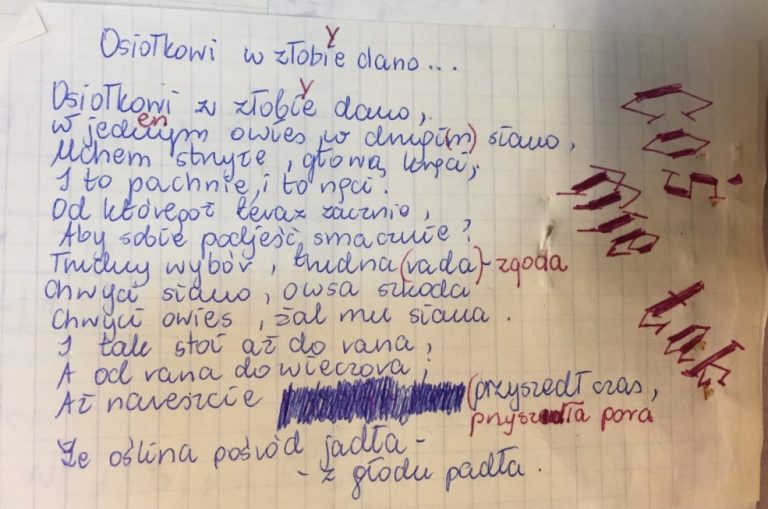 Osiołkowi w złobie dano...
y
Osiołkowi w złobie dano,
y
w jednym owies, w drugi(m) siano,
en
Uchem strzyże, głową kręci,
I to pachnie, i to nęci.
Od któregoż teraz zacznie,
Aby sobie podjeść smacznie?
Trudny wybór, trudna (rada) - zgoda
Chwyci siano, owsa szkoda
Chwyci owies, żal mu siana.
I tak stoi aż do rana,
A od rana do wieczora;
Aż nareszcie (przyszedł czas,
przyszedła pora
Że oślina pośród jadła -
- z głodu padła.
tak